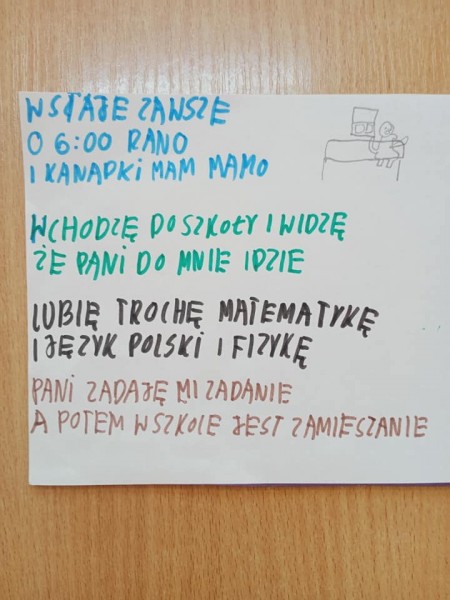 WSTAJE ZAWSZE
O 6:00 RANO
I KANAPKI MAM MAMO
WCHODZĘ DO SZKOŁY I WIDZĘ
ŻE PANI DO MNIE IDZIE
LUBIĘ TROCHĘ MATEMATYKĘ
I JĘZYK POLSKI I FIZYKĘ
PANI ZADAJĘ MI ZADANIE
A POTEM W SZKOLE JEST ZAMIESZANIE